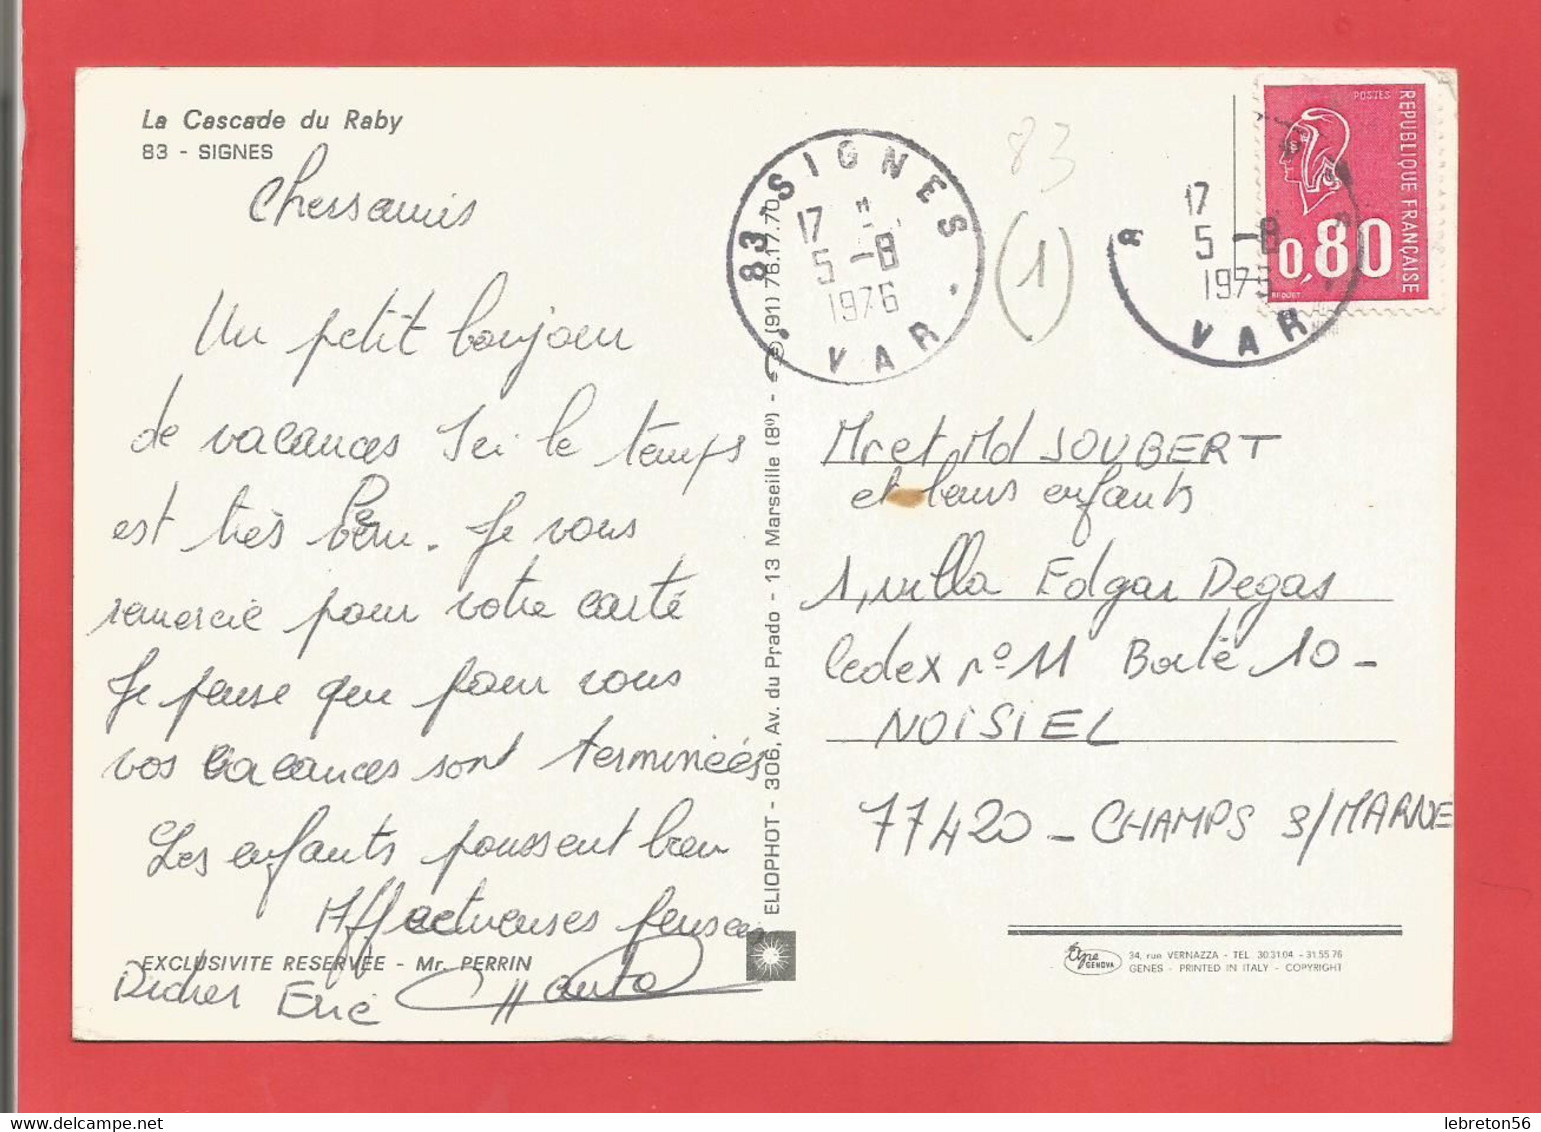 La Cascade du Raby
83 - SIGNES
Chers amis
Un petit bonjour
de vacances Ici le temps
est très beau. Je vous
remercie pour votre carte
Je pense que pour vous
vos vacances sont terminées
Les enfants poussent bien
Affectueuses pensées
EXCLUSIVITE RESERVÉE - Mr. PERRIN
Didier Eric
ELIOPHOT - 306, Av. du Prado - 13 Marseille (8e) - (91) 76.17.70
83 - SIGNES
17 H
5 - 8
1976
VAR
83
(1)
17
5 - 8
1976
VAR
POSTES
REPUBLIQUE FRANÇAISE
0,80
Mr et Md JOUBERT
et leurs enfants
1, villa Edgar Degas
Cedex n° 11 Boite 10 -
NOISIEL
77420 - CHAMPS s/ MARNE
GENOVA
34, rue VERNAZZA - TEL. 30.31.04 - 31.55.76
GENES - PRINTED IN ITALY - COPYRIGHT
lebreton56